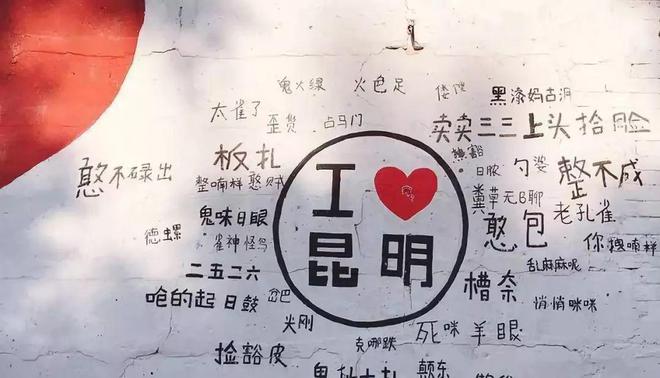 鬼火绿 火色足
黑漆妈古洞
太雀了 歪货 占马门
卖卖三三 上头 拾脸
板扎
憨不碌出
整喃样 憨贼
鬼味日眼
德螺
雀神怪鸟
二五二六
呛的起 日鼓
尖刚
捡豁皮
I
昆明
日脓 勺婆
整不成
粪草 无日聊
老孔雀
憨包
你想喃样
乱麻麻呢
槽奈
悄悄咪咪
死咪羊眼
克哪跌
颠东